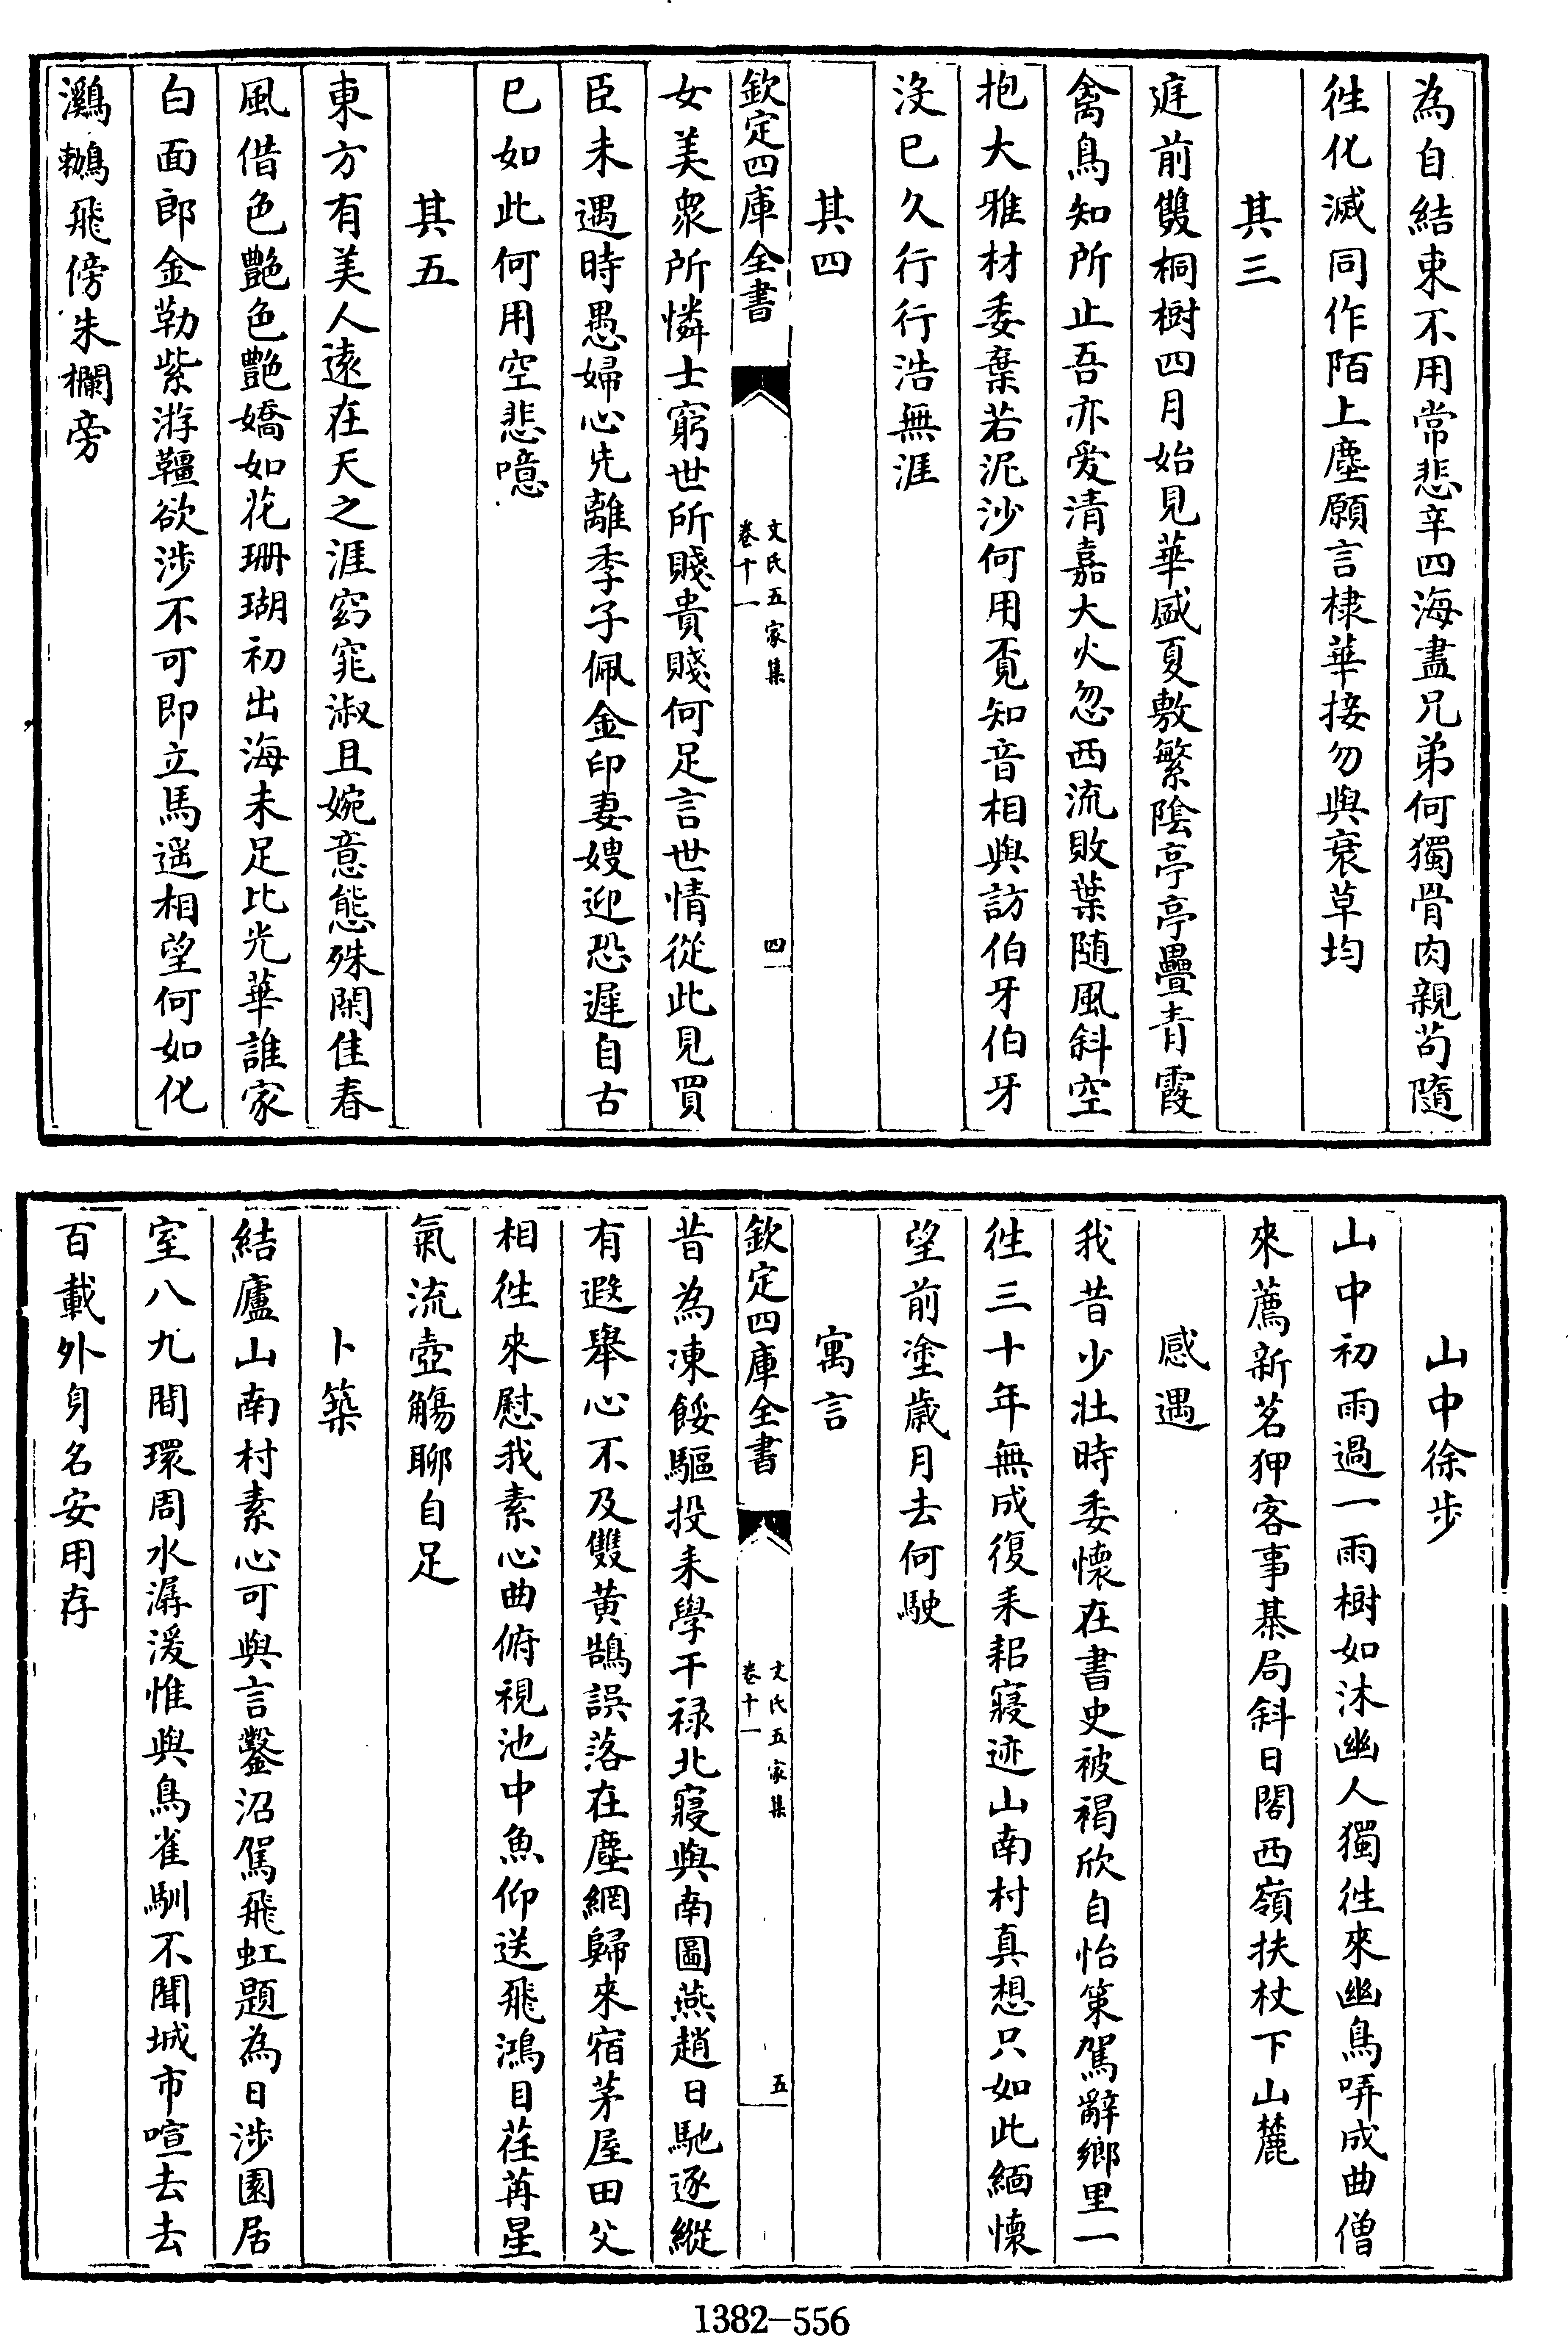 為自結束不用常悲辛四海盡兄弟何獨骨肉親苟隨
徃化滅同作陌上塵願言棣華接勿與衰草均
其三
庭前雙桐樹四月始見華盛夏敷繁陰亭亭疊青霞
禽鳥知所止吾亦愛清嘉大火忽西流敗葉随風斜空
抱大雅材委棄若泥沙何用覓知音相與訪伯牙伯牙
沒已久行行浩無涯
其四
欽定四庫全書
文氏五家集
卷十一
四
女美衆所憐士窮世所賤貴賤何足言世情從此見買
臣未遇時愚婦心先離季子佩金印妻嫂迎恐遲自古
已如此何用空悲噫
其五
東方有美人逺在天之涯窈窕淑且婉意態殊閑佳春
風借色艷色艷嬌如花珊瑚初出海未足比光華誰家
白面郎金勒紫游韁欲涉不可即立馬遥相望何如化
鸂鶒飛傍朱欄旁
山中徐步
山中初雨過一雨樹如沐幽人獨徃來幽鳥哢成曲僧
來薦新茗狎客事棊局斜日閣西嶺扶杖下山麓
感遇
我昔少壯時委懷在書史被褐欣自怡策駕辭鄉里一
徃三十年無成復耒耜寢迹山南村真想只如此緬懷
望前塗歲月去何駛
寓言
欽定四庫全書
文氏五家集
卷十一
五
昔為凍餒驅投耒學干禄北寢與南圖燕趙日馳逐縱
有遐舉心不及雙黄鵠誤落在塵網歸來宿茅屋田父
相徃來慰我素心曲俯視池中魚仰送飛鴻目荏苒星
氣流壺觴聊自足
卜築
結廬山南村素心可與言鑿沼駕飛虹題為日涉園居
室八九間環周水潺湲惟與鳥雀馴不聞城市喧去去
百載外身名安用存
1382-556